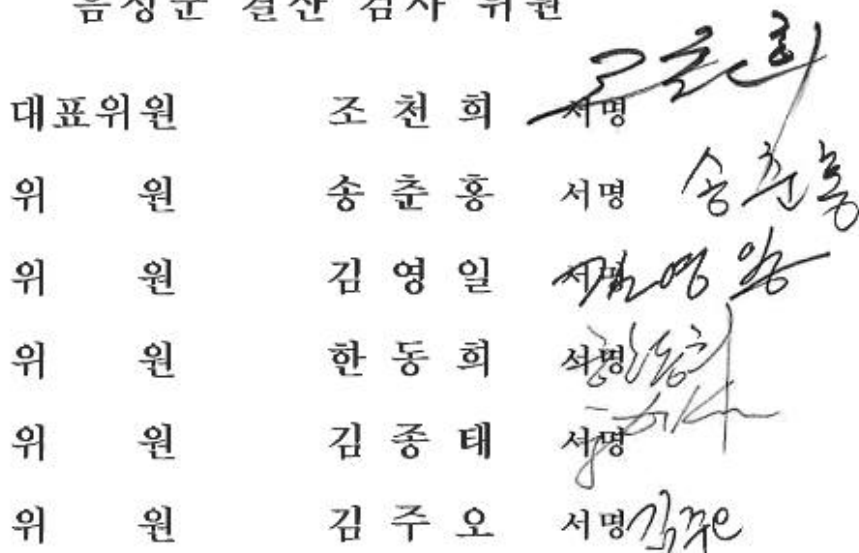 음성군 결산 검사 위원
대표위원 조 천 희 서명
위 원 송 춘 홍 서명 송춘홍
위 원 김 영 일 서명
위 원 한 동 희 서명 한동희
위 원 김 종 태 서명
위 원 김 주 오 서명 김주오